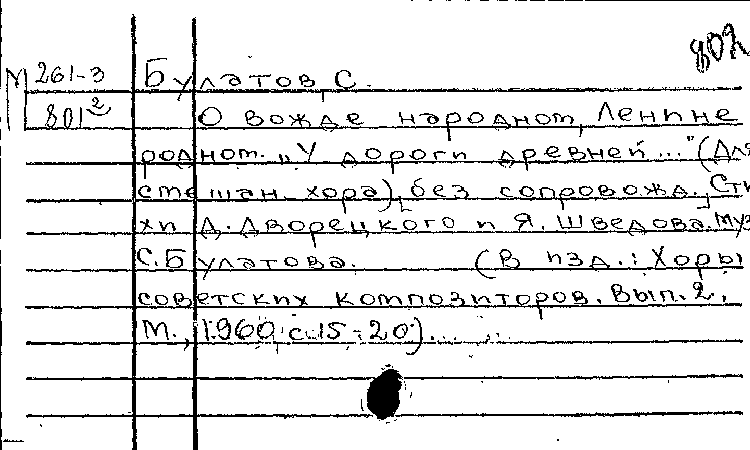 802
М 261-3 Булатов, С.
801² О вожде народном, Ленине
родном. „У дороги древней..." (Для
смешан. хора), без сопровожд., Сти
хи Д. Дворецкого и Я. Шведова. Муз
С. Булатова. (В изд.: Хоры
советских композиторов. Вып. 2.
М., 1960, с. 15-20)...